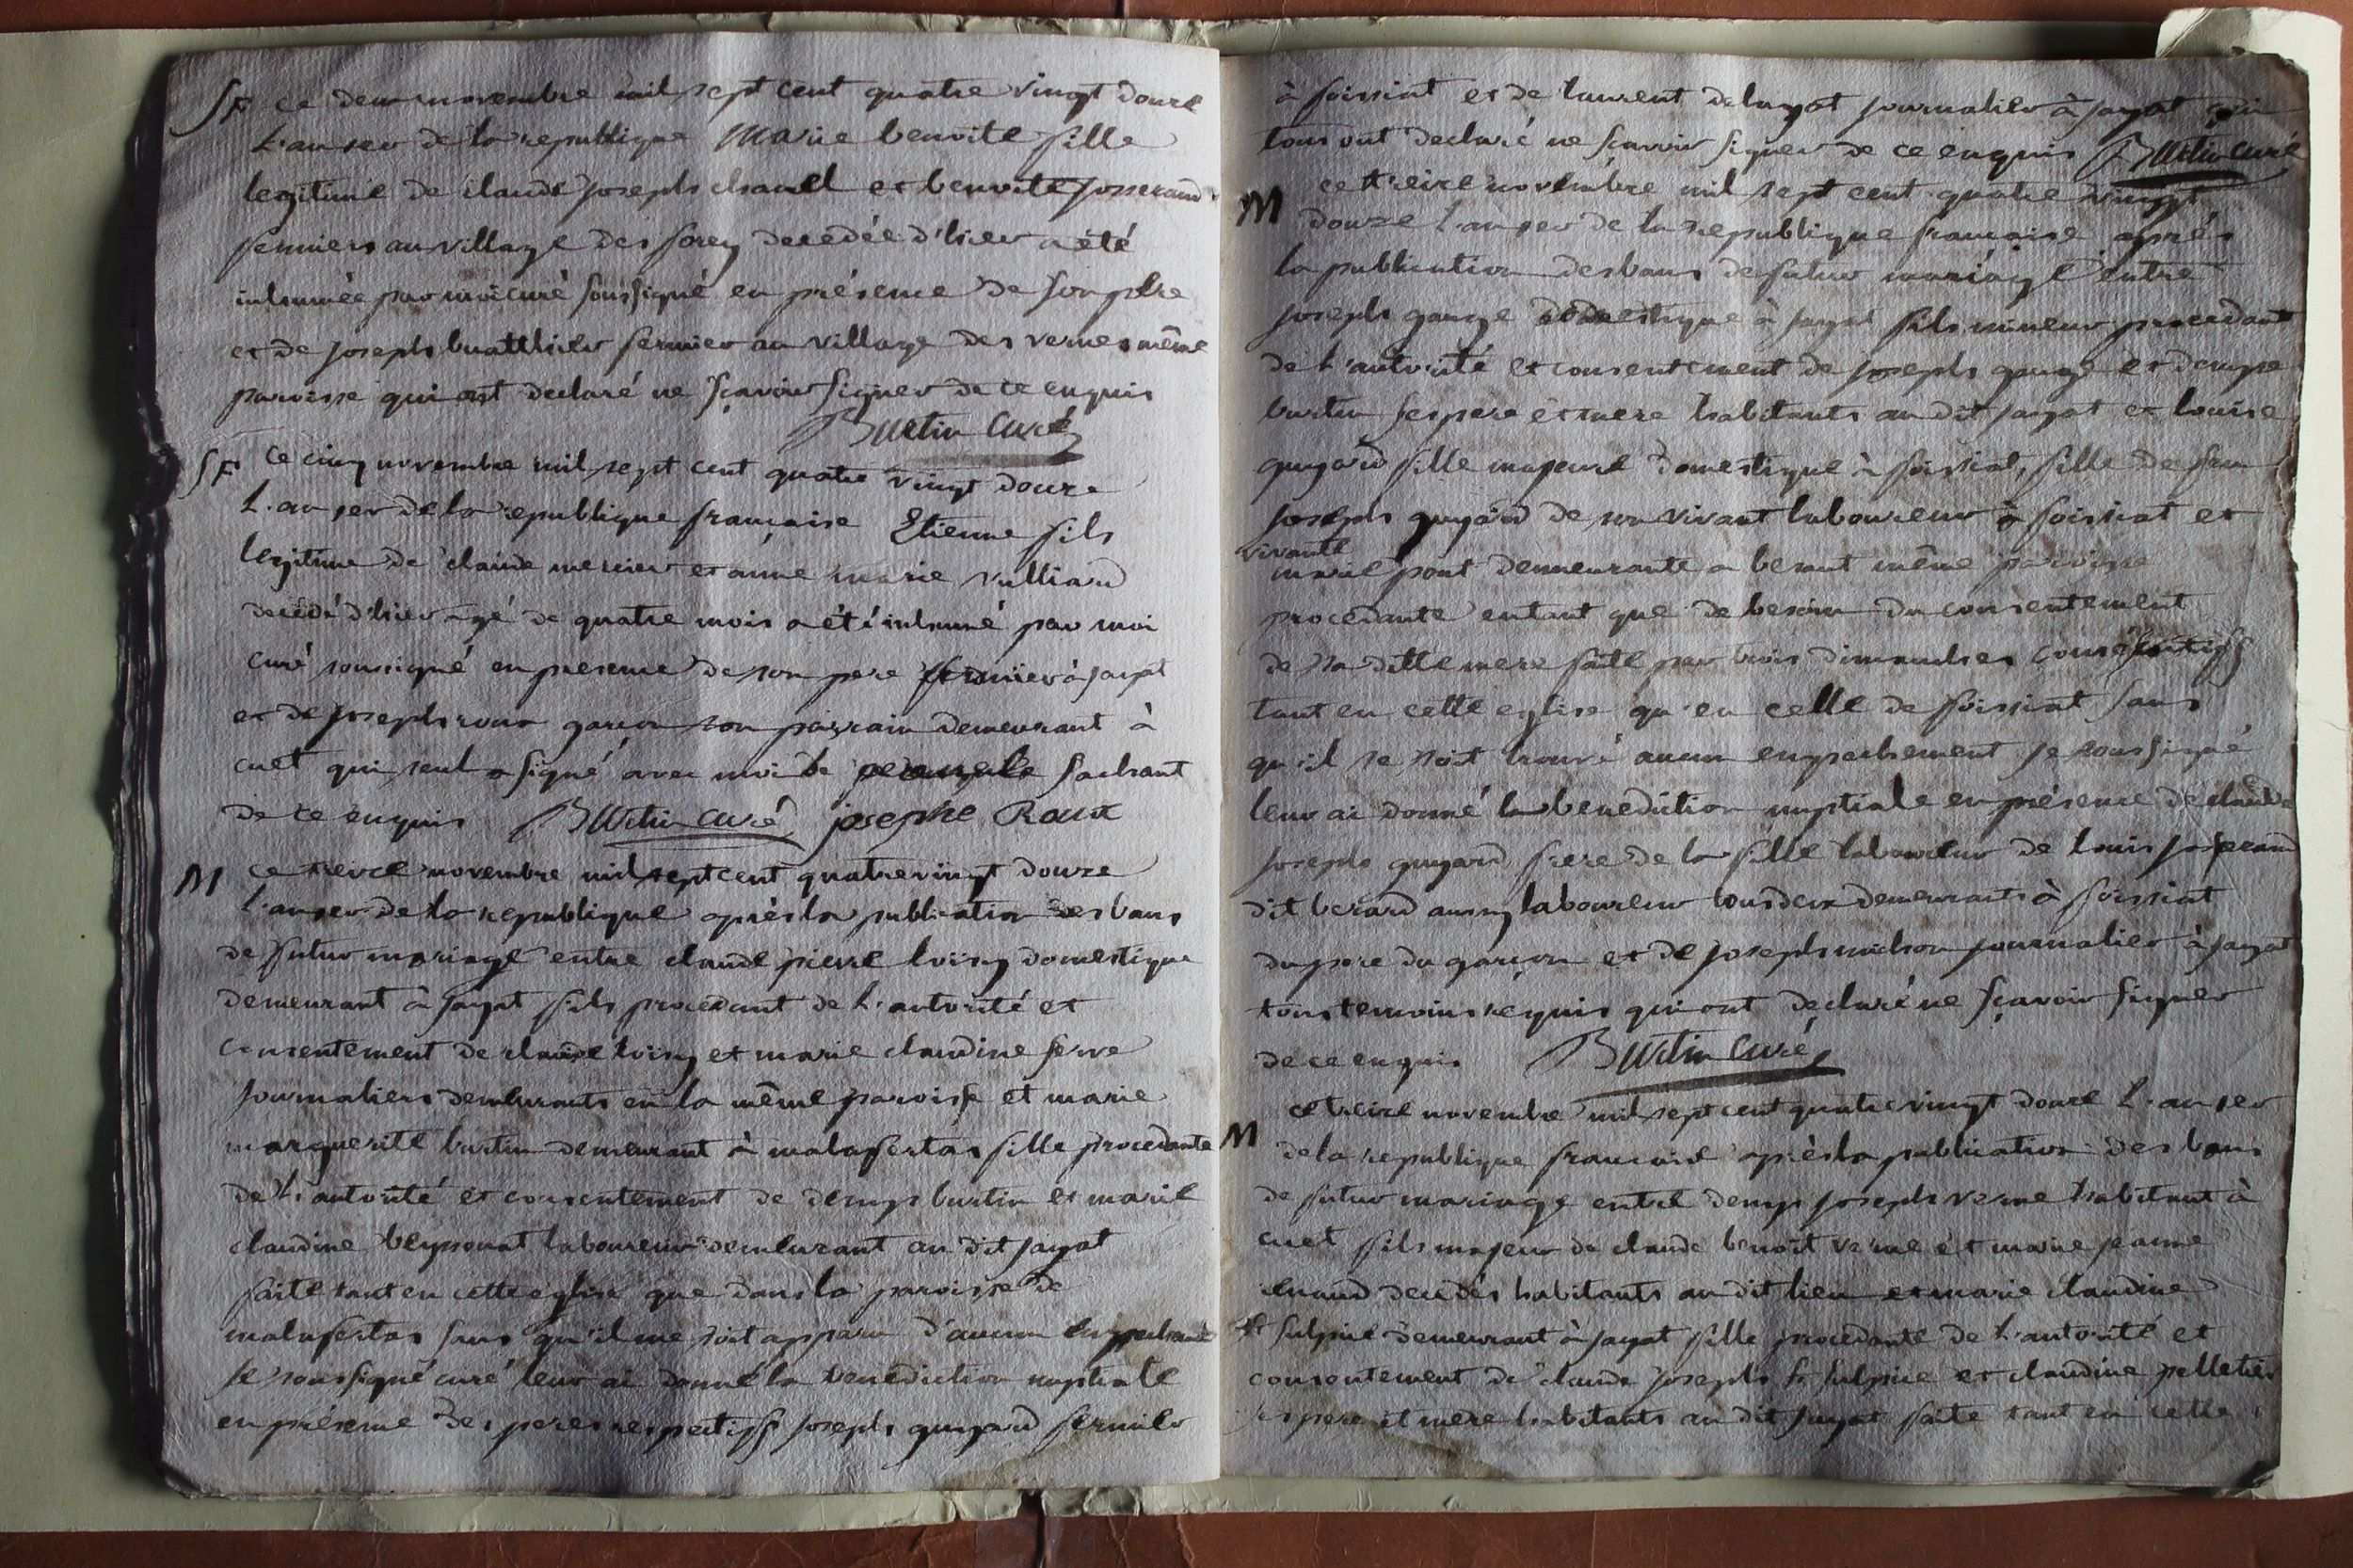 SF ce deux novembre mil sept cent quatre vingt douze
L'an 1er de la republique Marie benoite fille
legitime de claude joseph chanel et benoite josserand
fermiers au village des forey decedée d'hier a été
inhumée par moi curé soussigné en présence de son père
et de joseph buatthier fermier au village des vernes même
paroisse qui ont declaré ne sçavoir signer de ce enquis
Burtin Curé
SF ce cinq novembre mil sept cent quatre vingt douze
L'an 1er de la republique française Etienne fils
legitime de claude mercier et anne marie vulliard
decedé d'hier agé de quatre mois a été inhumé par moi
curé soussigné en presence de son pere fermier à jayat
et de joseph roux garçon son parrain demeurant à
cuet qui seul a signé avec moi le sachant
de ce enquis Burtin curé josephe Roux
M ce treize novembre mil sept cent quatre vingt douze
l'an 1er de la republique après la publication des bans
de futur mariage entre claude pierre loisy domestique
demeurant à jayat fils procedant de l'autorité et
consentement de claude loisy et marie claudine serve
journaliers demeurants en la même paroisse et marie
marguerite burtin demeurant à malafretas fille procedante
de l'autorité et consentement de denys burtin et marie
claudine beyssonat laboureur demeurant au dit jayat
faite tant en cette eglise que dans la paroisse de
malafretas sans qu'il me soit apparu d'aucun empechement
je soussigné curé leur ai donné la benediction nuptiale
en présence des peres respectifs joseph guyard fermier
à foissiat et de laurent delayat journalier à jayat qui
tous ont declaré ne scavoir signer de ce enquis Burtin curé
M ce treize novembre mil sept cent quatre vingt
douze l'an 1er de la republique française après
la publication des bans de futur mariage entre
joseph gauge domestique à jayat fils mineur procedant
de l'autorité et consentement de joseph gauge et denyse
burtin ses pere et mere habitants au dit jayat et louise
guyard fille majeure domestique à foissiat, fille de feu
joseph guyard de son vivant laboureur à foissiat et
vivante
marie pont demeurante a bevant même paroisse
procedante entant que de besoin du consentement
de sa ditte mere faite par trois dimanches consecutifs
tant en cette eglise qu'en celle de foissiat sans
qu'il se soit trouvé aucun empechement je soussigné
leur ai donné la benediction nuptiale en présence de claude
joseph guyard frere de la fille laboureur de louis josserand
dit berard aussy laboureur tous deux demeurants à foissiat
du pere du garçon et de joseph michon journalier à jayat
tous temoins requis qui ont declaré ne sçavoir signer
de ce enquis Burtin Curé
M ce treize novembre mil sept cent quatre vingt douze l'an 1er
de la republique française après la publication des bans
de futur mariage entre denys joseph verne habitant à
cuet fils majeur de claude benoît verne et marie jeanne
decedés habitants au dit lieu et marie claudine
st sulpice demeurant à jayat fille procedante de l'autorité et
consentement de claude joseph st sulpice et claudine pelletier
ses pere et mere habitants au dit jayat faite tant en cette